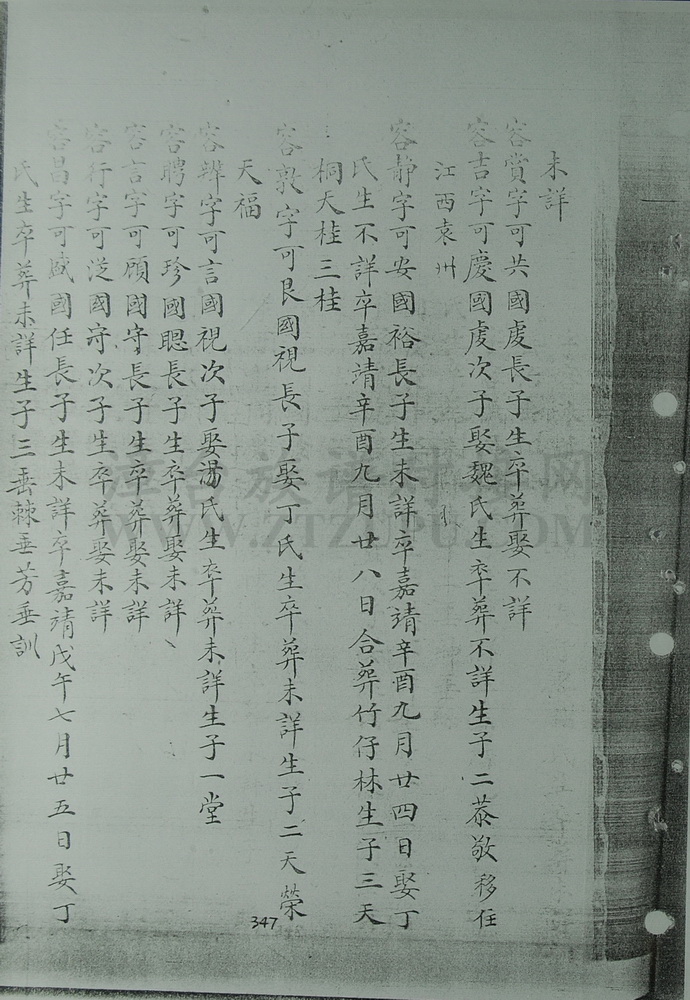 未詳
容賞字可共國虔長子生卒葬娶不詳
容吉字可慶國虔次子娶魏氏生卒葬不詳生子二恭敬移住
江西袁州
容靜字可安國裕長子生未詳卒嘉靖辛酉九月廿四日娶丁
氏生不詳卒嘉靖辛酉九月廿八日合葬竹仔林生子三天
桐天桂三桂
容敦字可艮國視長子娶丁氏生卒葬未詳生子二天榮
天福
容辨字可言國視次子娶湯氏生卒葬未詳生子一堂
容聘字可珍國聰長子生卒葬娶未詳
容言字可顧國守長子生卒葬娶未詳
容行字可從國守次子生卒葬娶未詳
容昌字可盛國任長子生未詳卒嘉靖戊午七月廿五日娶丁
氏生卒葬未詳生子三垂棘垂芳垂訓
347
WWW.ZTZUPU.COM